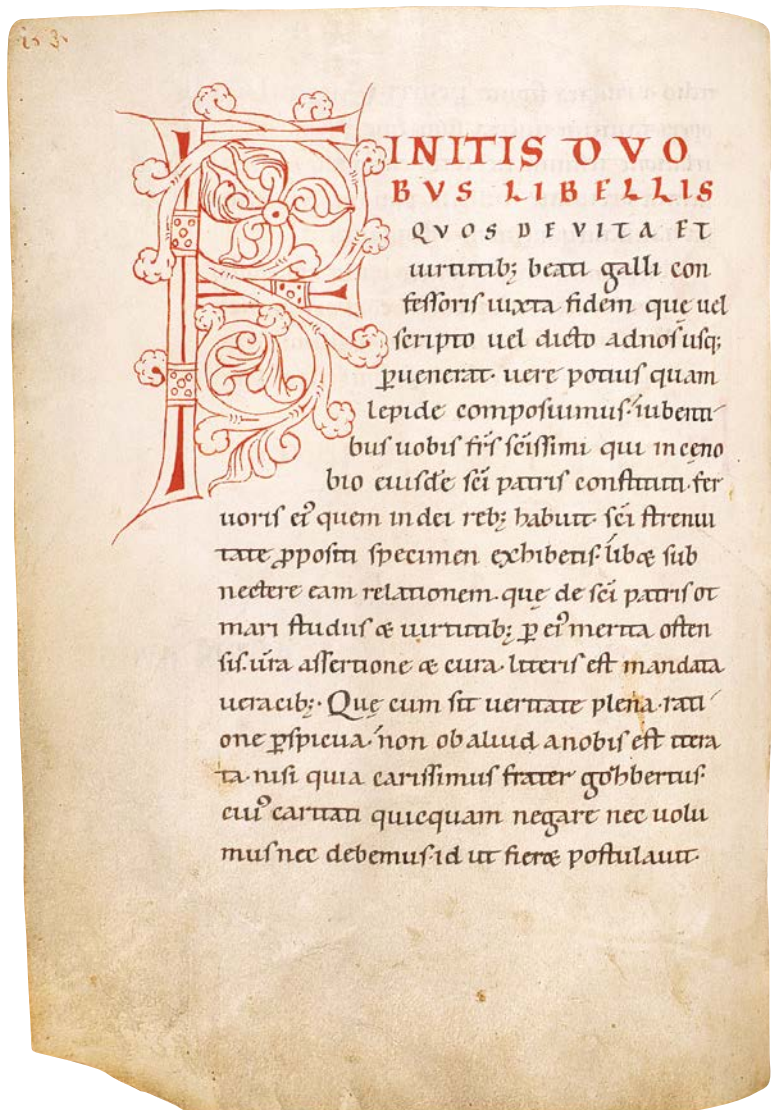 FINITIS DVO
BVS LIBELLIS
QVOS DE VITA ET
uirtutib; beati galli con
fessoris iuxta fidem quę uel
scripto uel dicto ad nos usq;
ꝑuenerat· uere potius quam
lepide composuimus· iubenti
bus uobis fr̄s sc̄issimi qui in ceno
bio eiusdē sc̄i patris constituti· fer
uoris ei᾿ quem in dei reb; habuit· sc̄i strenui
tate ꝓpositi specimen exhibetis· lib& sub
nectere eam relationem· quę de sc̄i patris ot
mari studiis & uirtutib; ꝑ ei᾿ merita osten
sis· ur̄a assertione & cura· litteris est mandata
ueracib;· Quę cum sit ueritate plena· rati
one ꝑspicua· non ob aliud a nobis est itera
ta· nisi quia carissimus frater gozbertus·
cui᾿ caritati quicquam negare nec uolu
mus nec debemus· id ut fier& postulauit·